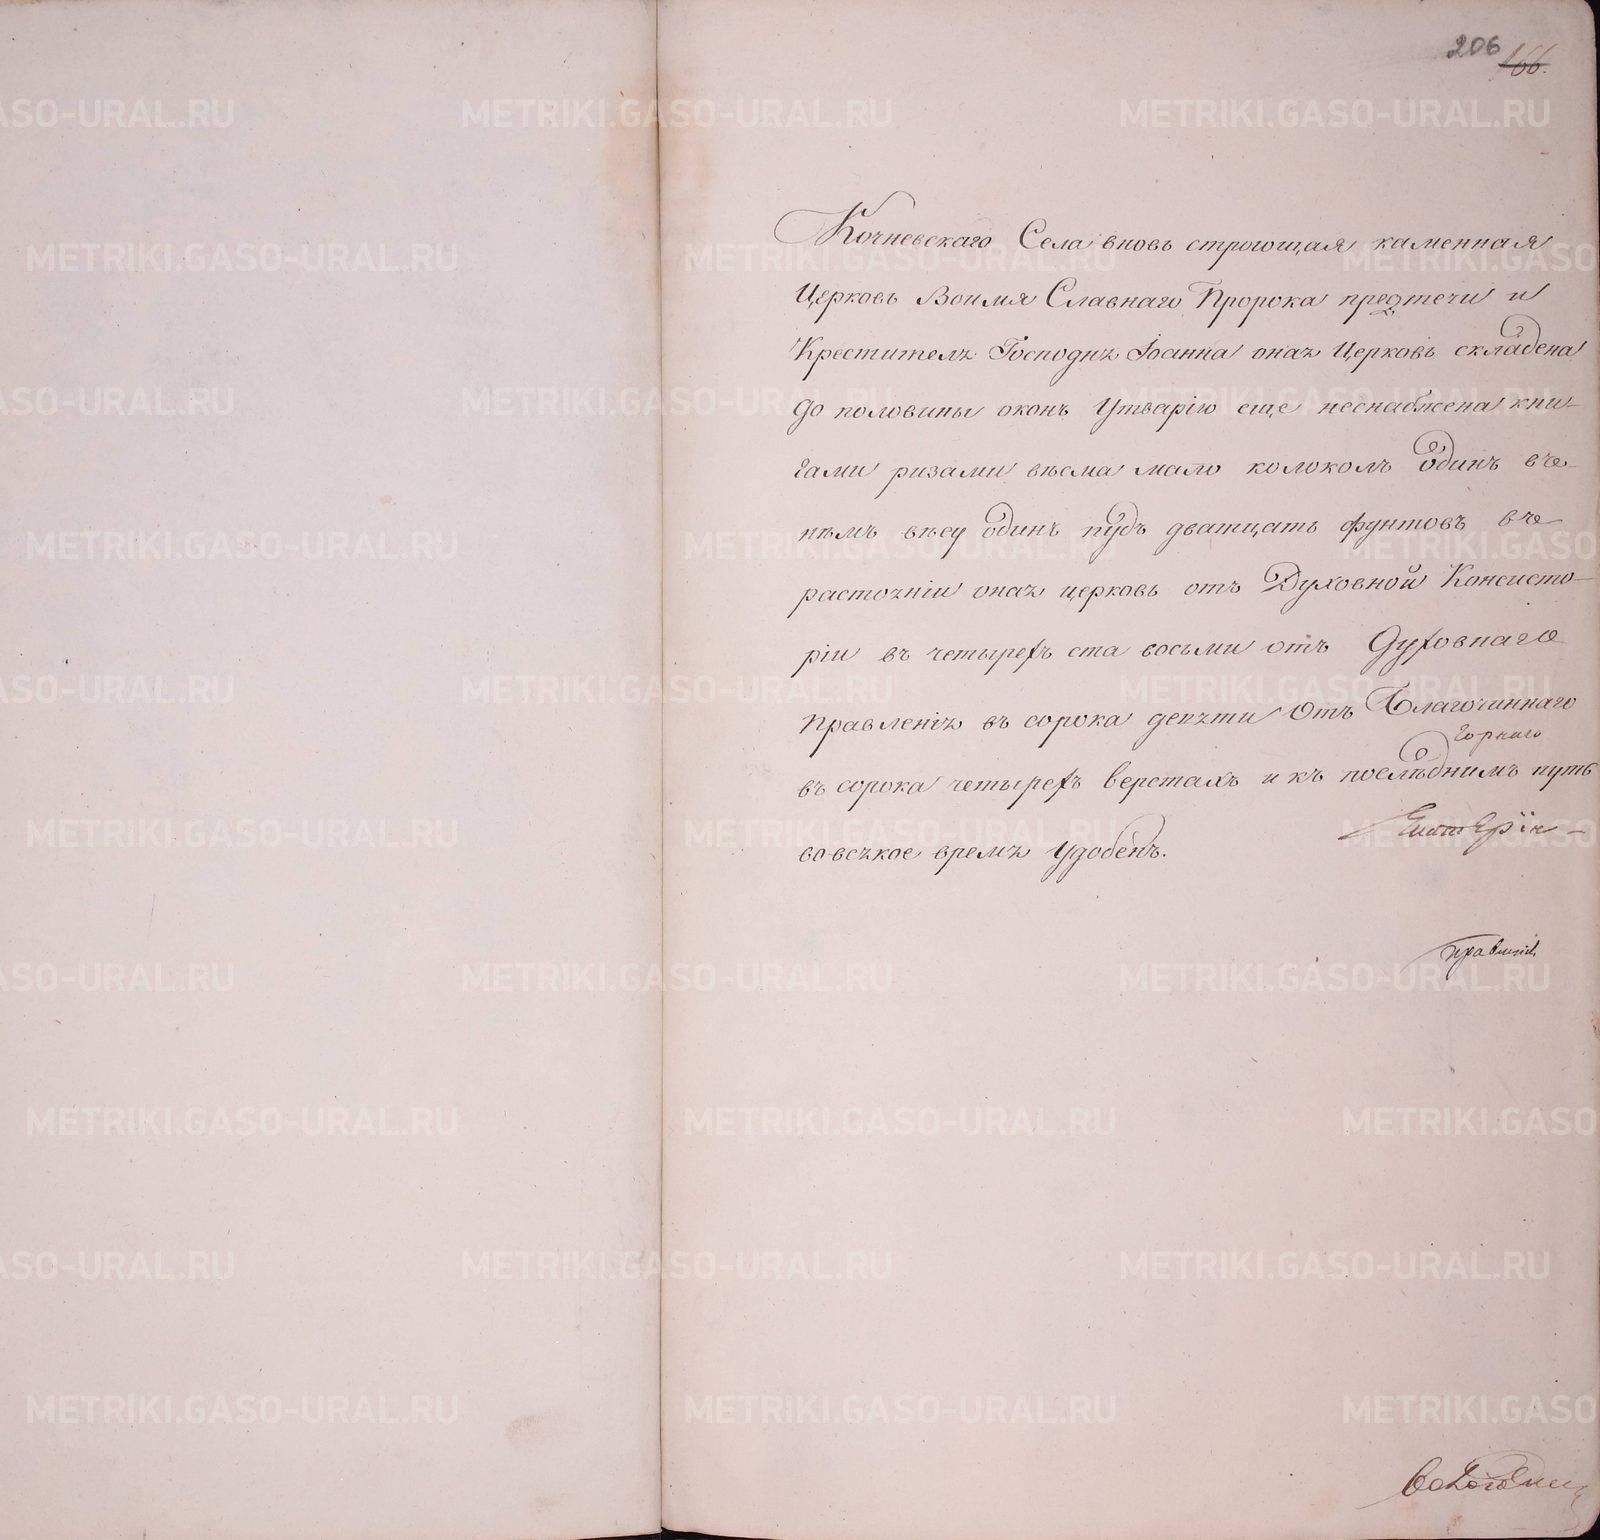 206 166.
Кочневскаго Села вновь строющая каменная
Церковь Воимя Славнаго Пророка предтечи и
Крестителя Господня Іоанна оная Церковь складена
до половины оконъ Утварію еще неснабжена кни-
гами ризами вѣсма мало колоколъ одинъ вче-
немъ вѣсу одинъ пудъ дватцать фунтовъ вче-
расточніи оная церковь отъ Духовной Консисто-
ріи въ четырехъ ста восьми отъ Духовнаго
Правленія въ сорока девяти Отъ Благочиннаго
Горнаго
въ сорока четырехъ верстахъ и къ послѣднимъ путь
Екатерін-
вовсякое время Удобенъ.
правленія
METRIKI.GASO-URAL.RU